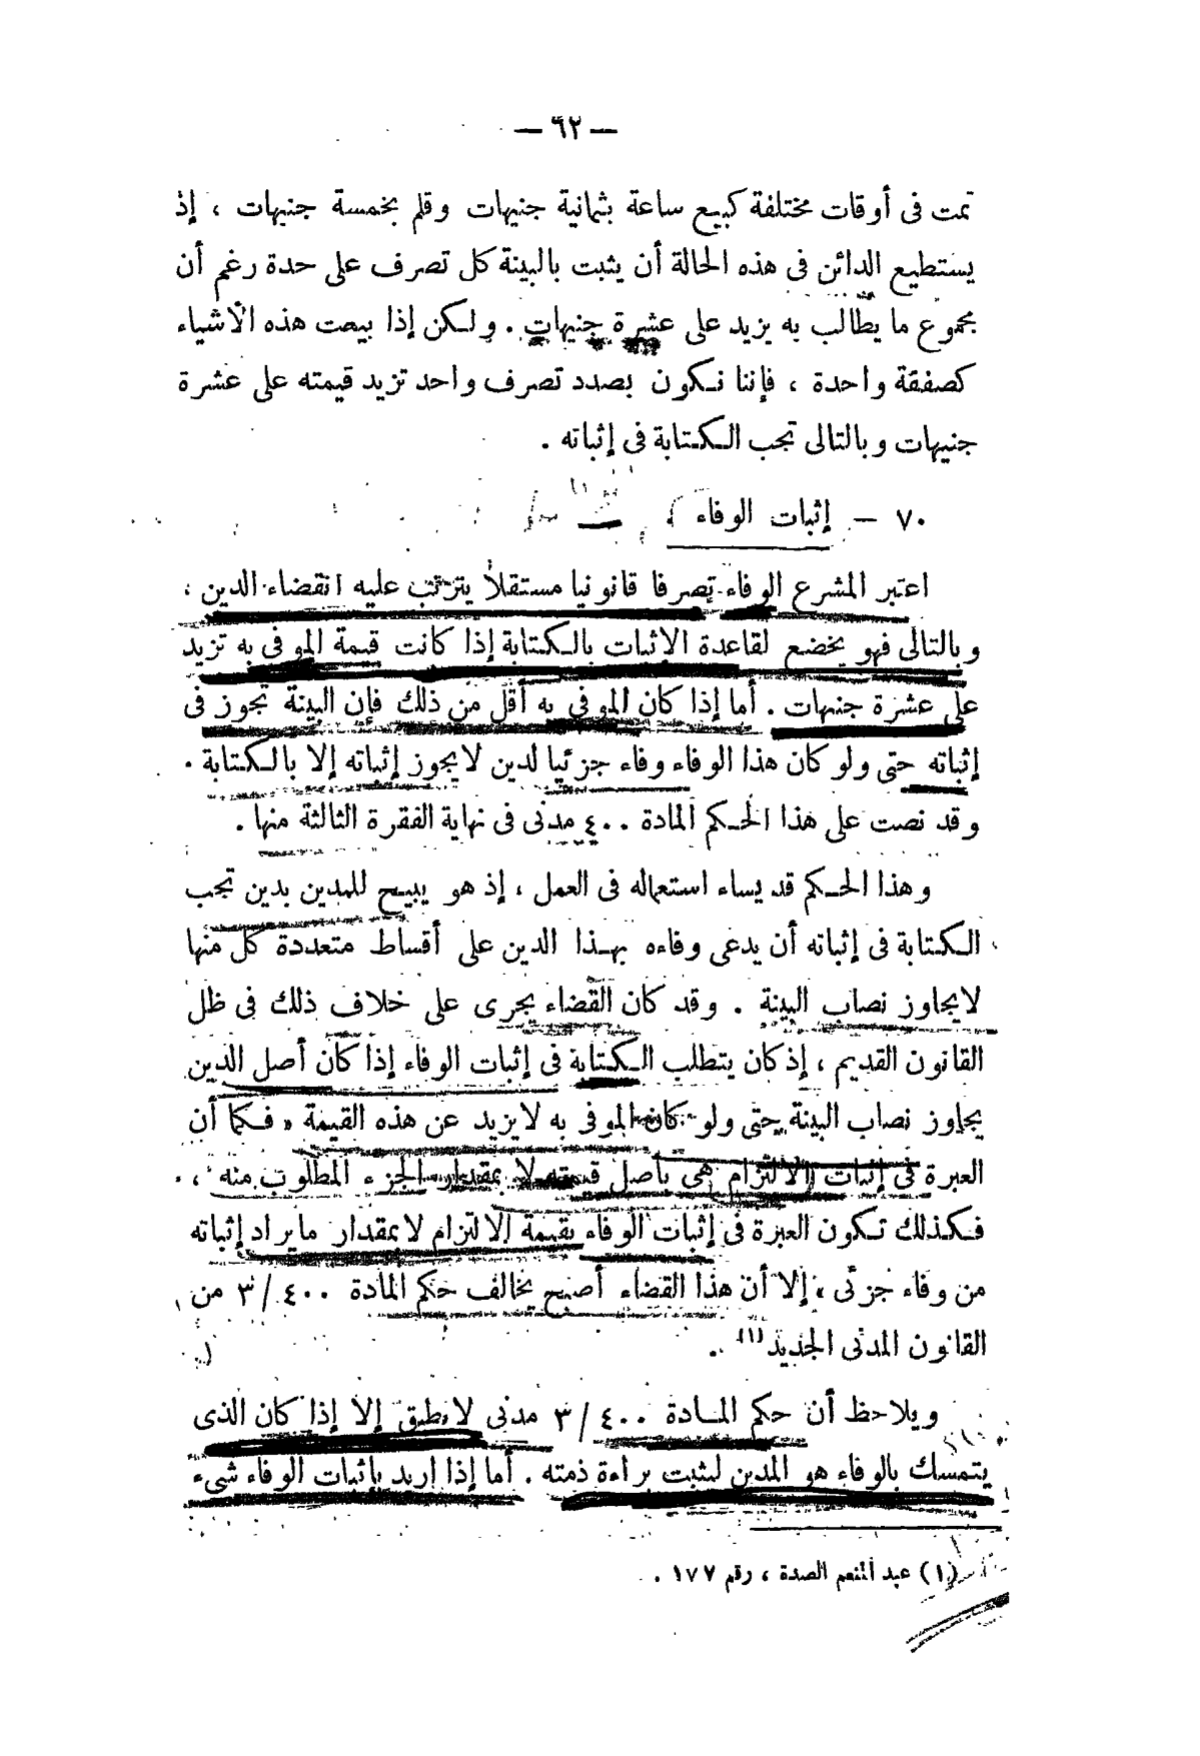 — ٦٢ —
تمت فى أوقات مختلفة كبيع ساعة بثمانية جنيهات وقلم بخمسة جنيهات ، إذ
يستطيع الدائن فى هذه الحالة أن يثبت بالبينة كل تصرف على حدة رغم أن
مجموع ما يطالب به يزيد على عشرة جنيهات . ولكن إذا بيعت هذه الأشياء
كصفقة واحدة ، فإننا نكون بصدد تصرف واحد تزيد قيمته على عشرة
جنيهات وبالتالى تجب الكتابة فى إثباته .
٧٠ — إثبات الوفاء
اعتبر المشرع الوفاء تصرفا قانونيا مستقلا يترتب عليه انقضاء الدين ،
وبالتالى فهو يخضع لقاعدة الاثبات بالكتابة إذا كانت قيمة الموفى به تزيد
على عشرة جنيهات . أما إذا كان الموفى به أقل من ذلك فإن البينة تجوز فى
إثباته حتى ولو كان هذا الوفاء وفاء جزئيا لدين لا يجوز إثباته إلا بالكتابة .
وقد نصت على هذا الحكم المادة ٤٠٠ مدنى فى نهاية الفقرة الثالثة منها .
وهذا الحكم قد يساء استعماله فى العمل ، إذ هو يبيح للمدين بدين تجب
الكتابة فى إثباته أن يدعى وفاءه بهذا الدين على أقساط متعددة كل منها
لا يجاوز نصاب البينة . وقد كان القضاء يجرى على خلاف ذلك فى ظل
القانون القديم ، إذ كان يتطلب الكتابة فى إثبات الوفاء إذا كان أصل الدين
يجاوز نصاب البينة حتى ولو كان الموفى به لا يزيد عن هذه القيمة « فكما أن
العبرة فى إثبات الالتزام هى بأصل قيمته لا بمقدار الجزء المطلوب منه ،
فكذلك تكون العبرة فى إثبات الوفاء بقيمة الالتزام لا بمقدار ما يراد إثباته
من وفاء جزئى ، إلا أن هذا القضاء أصبح يخالف حكم المادة ٤٠٠ / ٣ من
القانون المدنى الجديد (١) .
ويلاحظ أن حكم المادة ٤٠٠ / ٣ مدنى لا يطبق إلا إذا كان الذى
يتمسك بالوفاء هو المدين ليثبت براءة ذمته . أما إذا اريد بإثبات الوفاء شىء
(١) عبد المنعم الصدة ، رقم ١٧٧ .